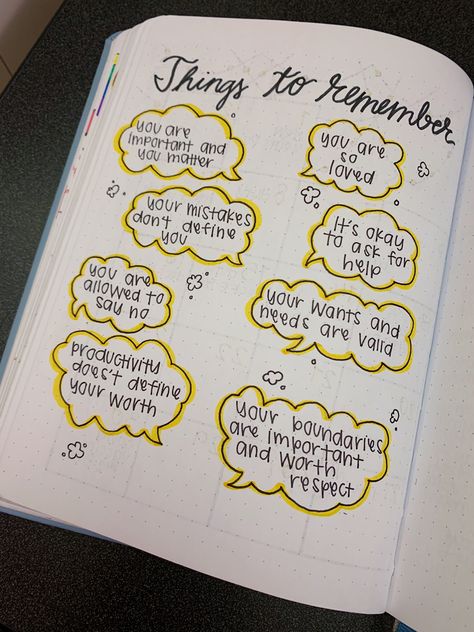 Things to remember
you are
important and
you matter
you are
so
loved
your mistakes
don't define
you
It's okay
to ask for
help
you are
allowed to
say no
your wants and
needs are valid
productivity
does't define
your worth
your boundaries
are important
and worth
respect